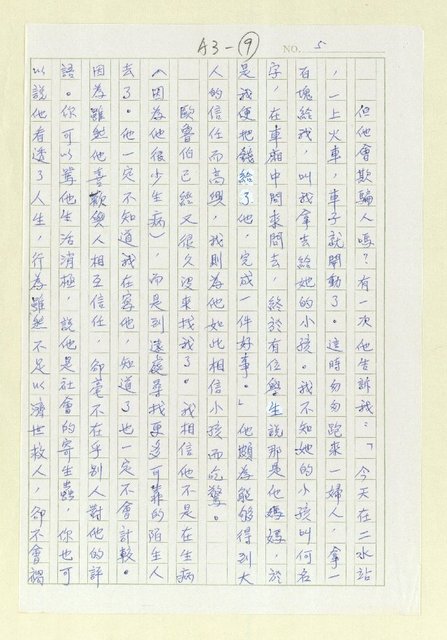 A3-⑨
NO. 5
但他會欺騙人嗎?有一次他告訴我:「今天在二水站
，一上火車，車子就開動了。這時匆匆跑來一婦人，拿一
百塊給我，叫我拿去給她的小孩。我不知她的小孩叫何名
字，在車廂中問來問去，終於有位學生說那是他媽媽，於
是我便把錢給了他，完成一件好事。」他頗為能夠得到大
人的信任而高興，我則為他如此相信小孩而吃驚。
歐魯伯已經又很久沒來找我了。我相信他不是在生病
(因為他很少生病)，而是到遠處尋找更多可靠的陌生人
去了。他一定不知道我在寫他，知道了也一定不會計較。
因為雖然他喜歡與人相互信任，卻毫不在乎別人對他的評
語。你可以罵他生活消極，說他是社會的寄生蟲，你也可
以說他看透了人生，行為雖然不足以濟世救人，卻不會禍